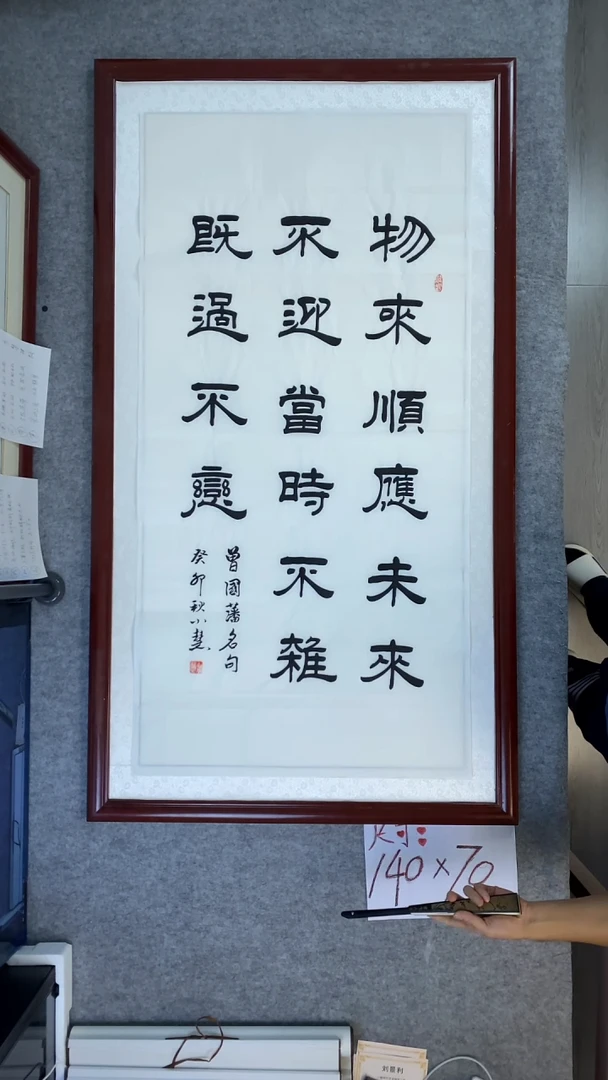 物來順應未來
不迎當時不雜
既過不戀
曾國藩名句
癸卯秋小慧
尺寸:
140×70